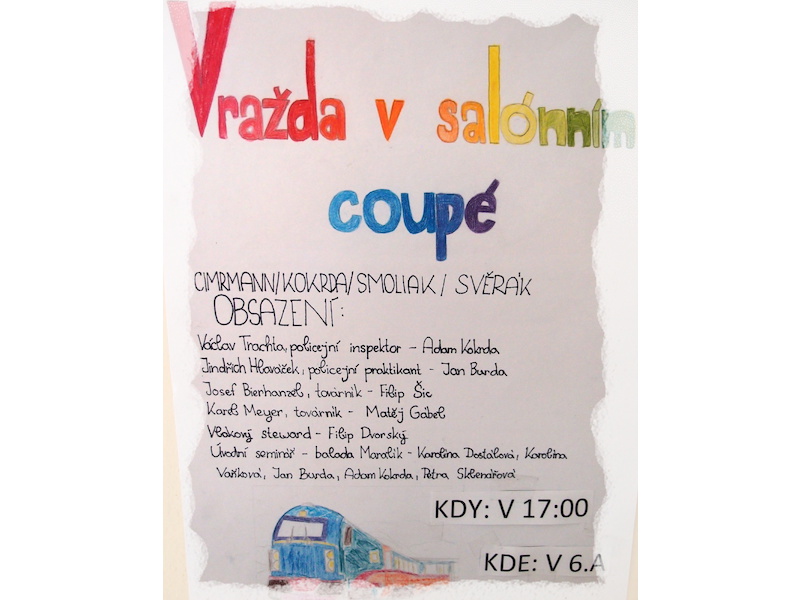 Vražda v salónním
coupé
CIMRMANN/KOKRDA/SMOLIAK/ SVĚRÁK
OBSAZENÍ:
Václav Trachta, policejní inspektor - Adam Kokrda
Jindřich Hlaváček, policejní praktikant - Jan Burda
Josef Bierhanzel, továrník - Filip Šic
Karel Meyer, továrník - Matěj Gábel
Vlakový steward - Filip Dvorský
Úvodní seminář - balada Moralik - Karolína Dostálová, Karolína
Vaňková, Jan Burda, Adam Kokrda, Petra Sklenářová
KDY: V 17:00
KDE: V 6.A